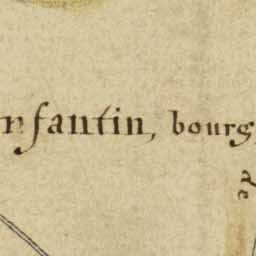 nfantin, bourg